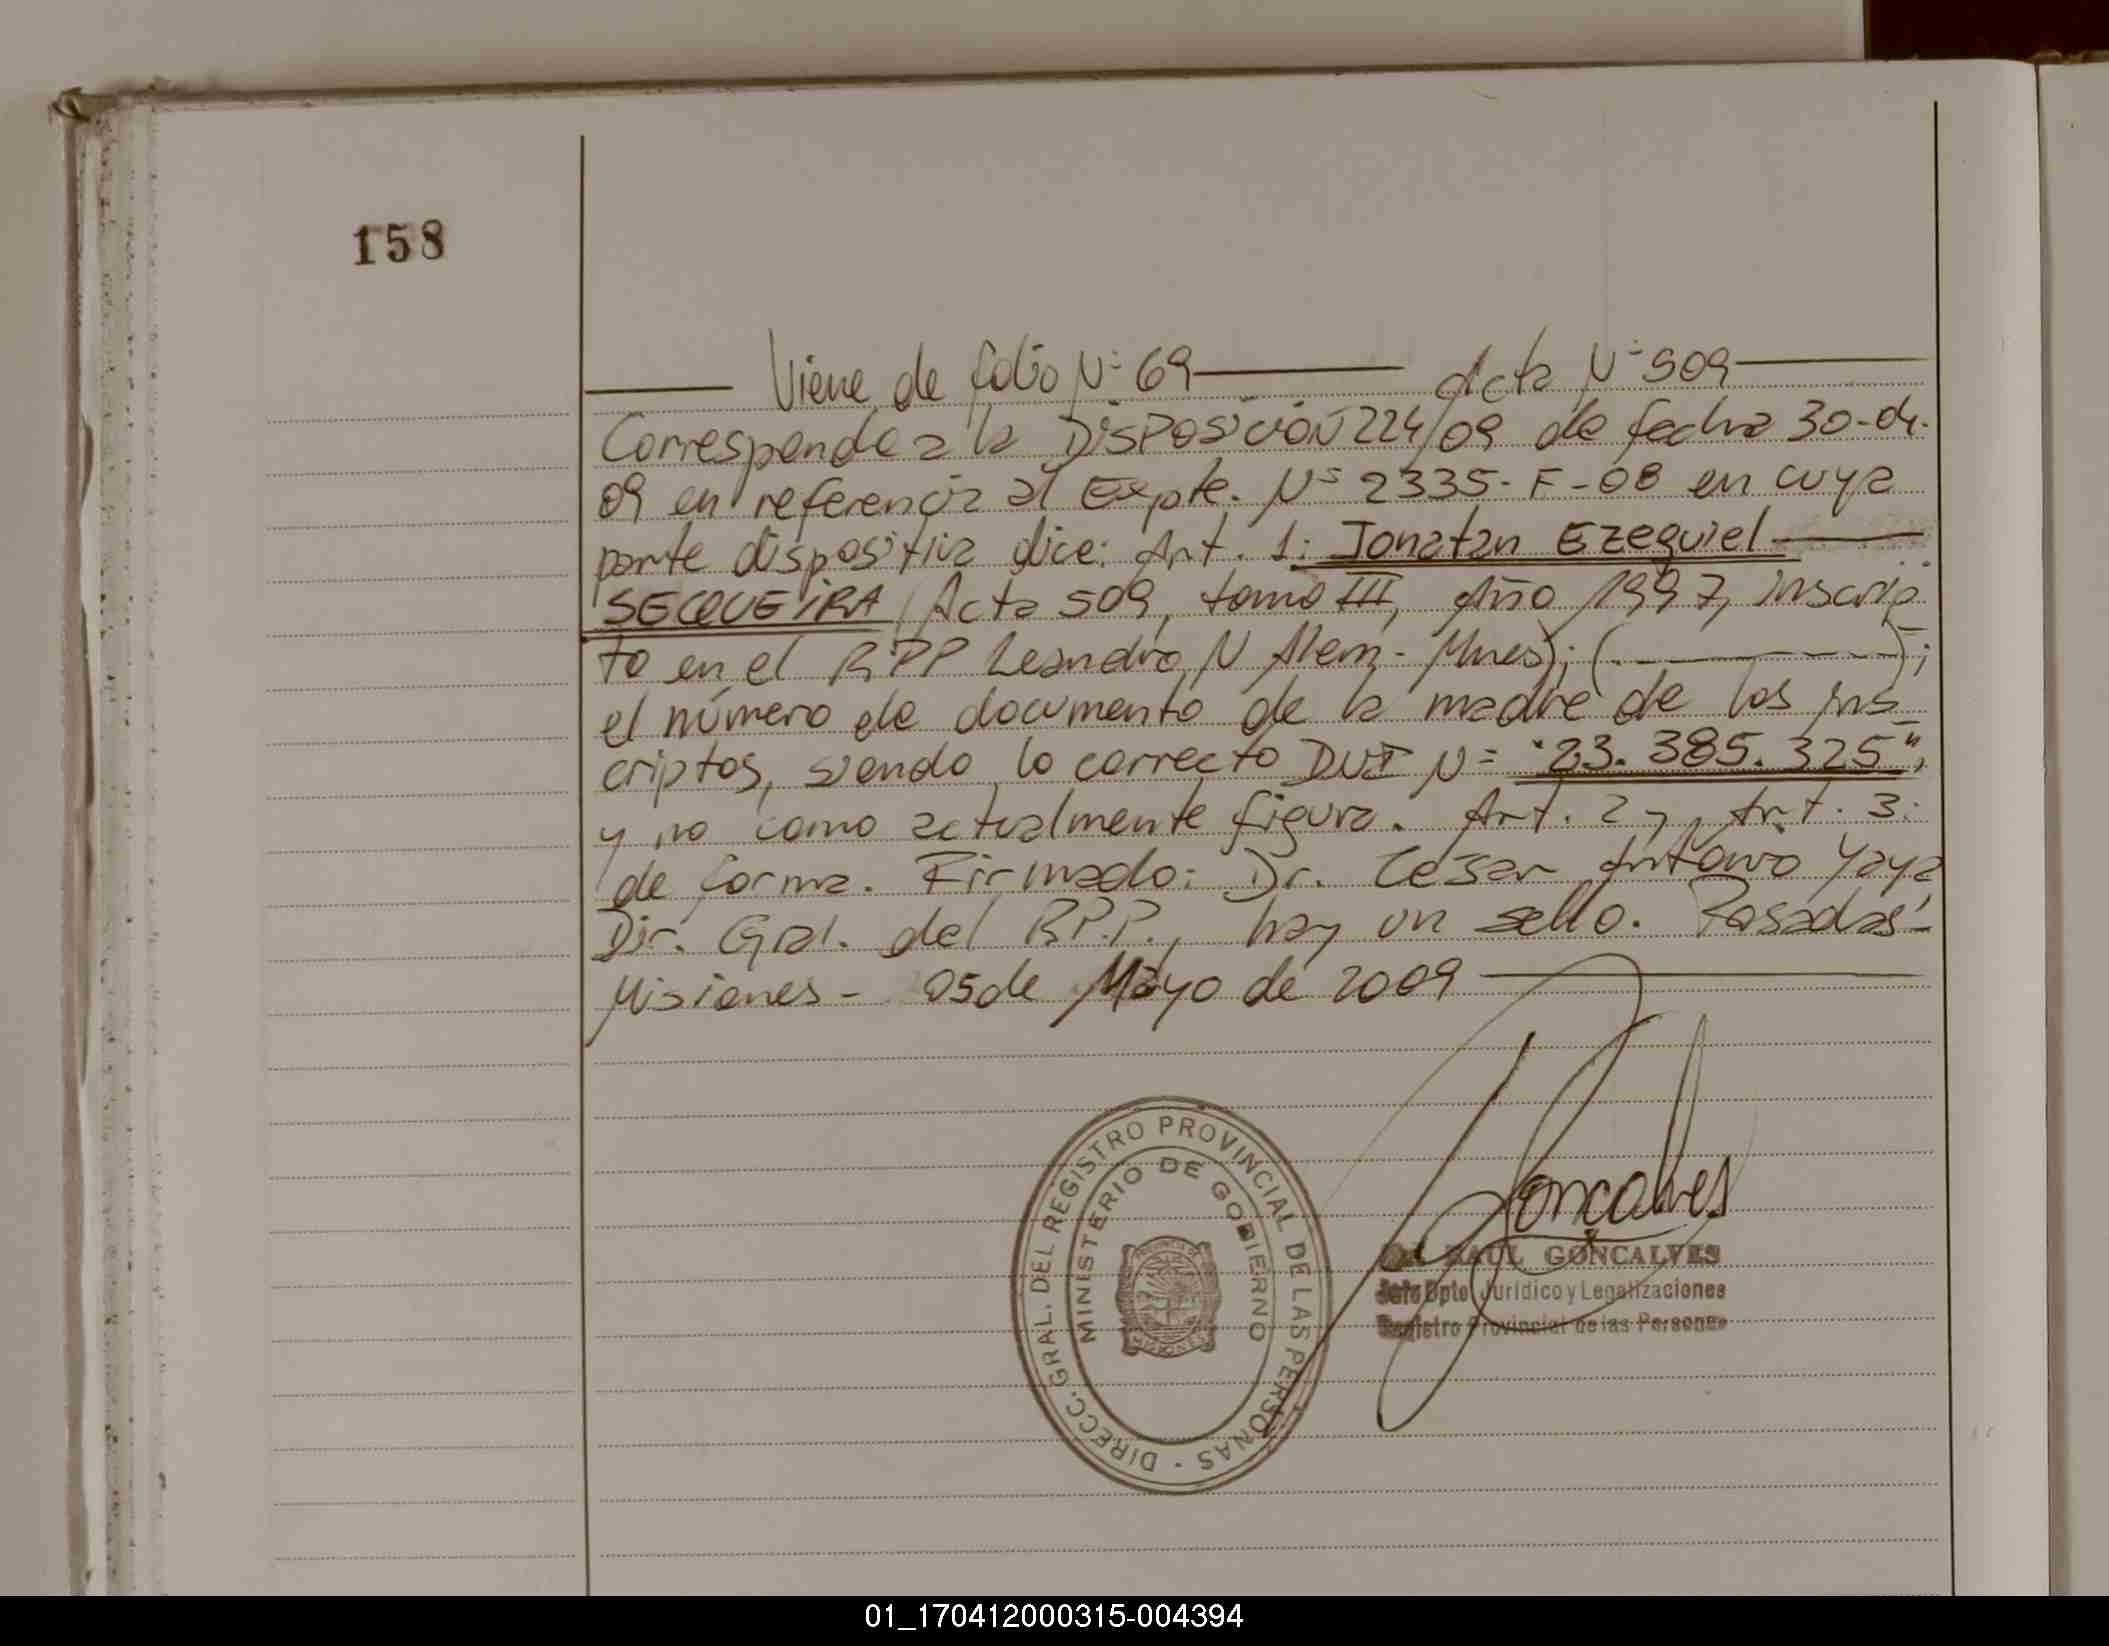 158
Viene de folio Nº 69 Acta Nº 509
Corresponde a la DISPOSICION 224/09 de fecha 30-04-
09 en referencia al Expte. Nº 2335-F-08 en cuya
parte dispositiva dice: Art. 1: Jonatan EZequiel
SECQUEIRA (Acta 509, tomo III, Año 1997, inscrip
to en el RPP Leandro N Alem - Mnes); ( );
el número de documento de la madre de los ins
criptos, siendo lo correcto DNI Nº "23.385.325",
y no como actualmente figura. Art. 2 y Art. 3:
de forma. Firmado: Dr. Cesar Antonio Yaya
Dir. Gral. del R.P.P., hay un sello. Posadas-
Misiones - 05 de Mayo de 2009
DIRECC. GRAL. DEL REGISTRO PROVINCIAL DE LAS PERSONAS -
MINISTERIO DE GOBIERNO
PROVINCIA DE
MISIONES
Gonçalves
RAUL GONÇALVES
Jefe Dpto Jurídico y Legalizaciones
Registro Provincial de las Personas
01_170412000315-004394